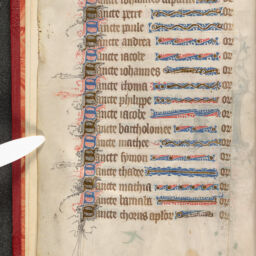 Sancte iohannes baptista or
Sancte petre or
Sancte paule or
Sancte andrea or
Sancte iacobe or
Sancte iohannes or
Sancte thoma or
Sancte philippe or
Sancte iacobe or
Sancte bartholomee or
Sancte mathee or
Sancte symon or
Sancte thadee or
Sancte mathia or
Sancte barnaba or
Sancte chorus aplor or